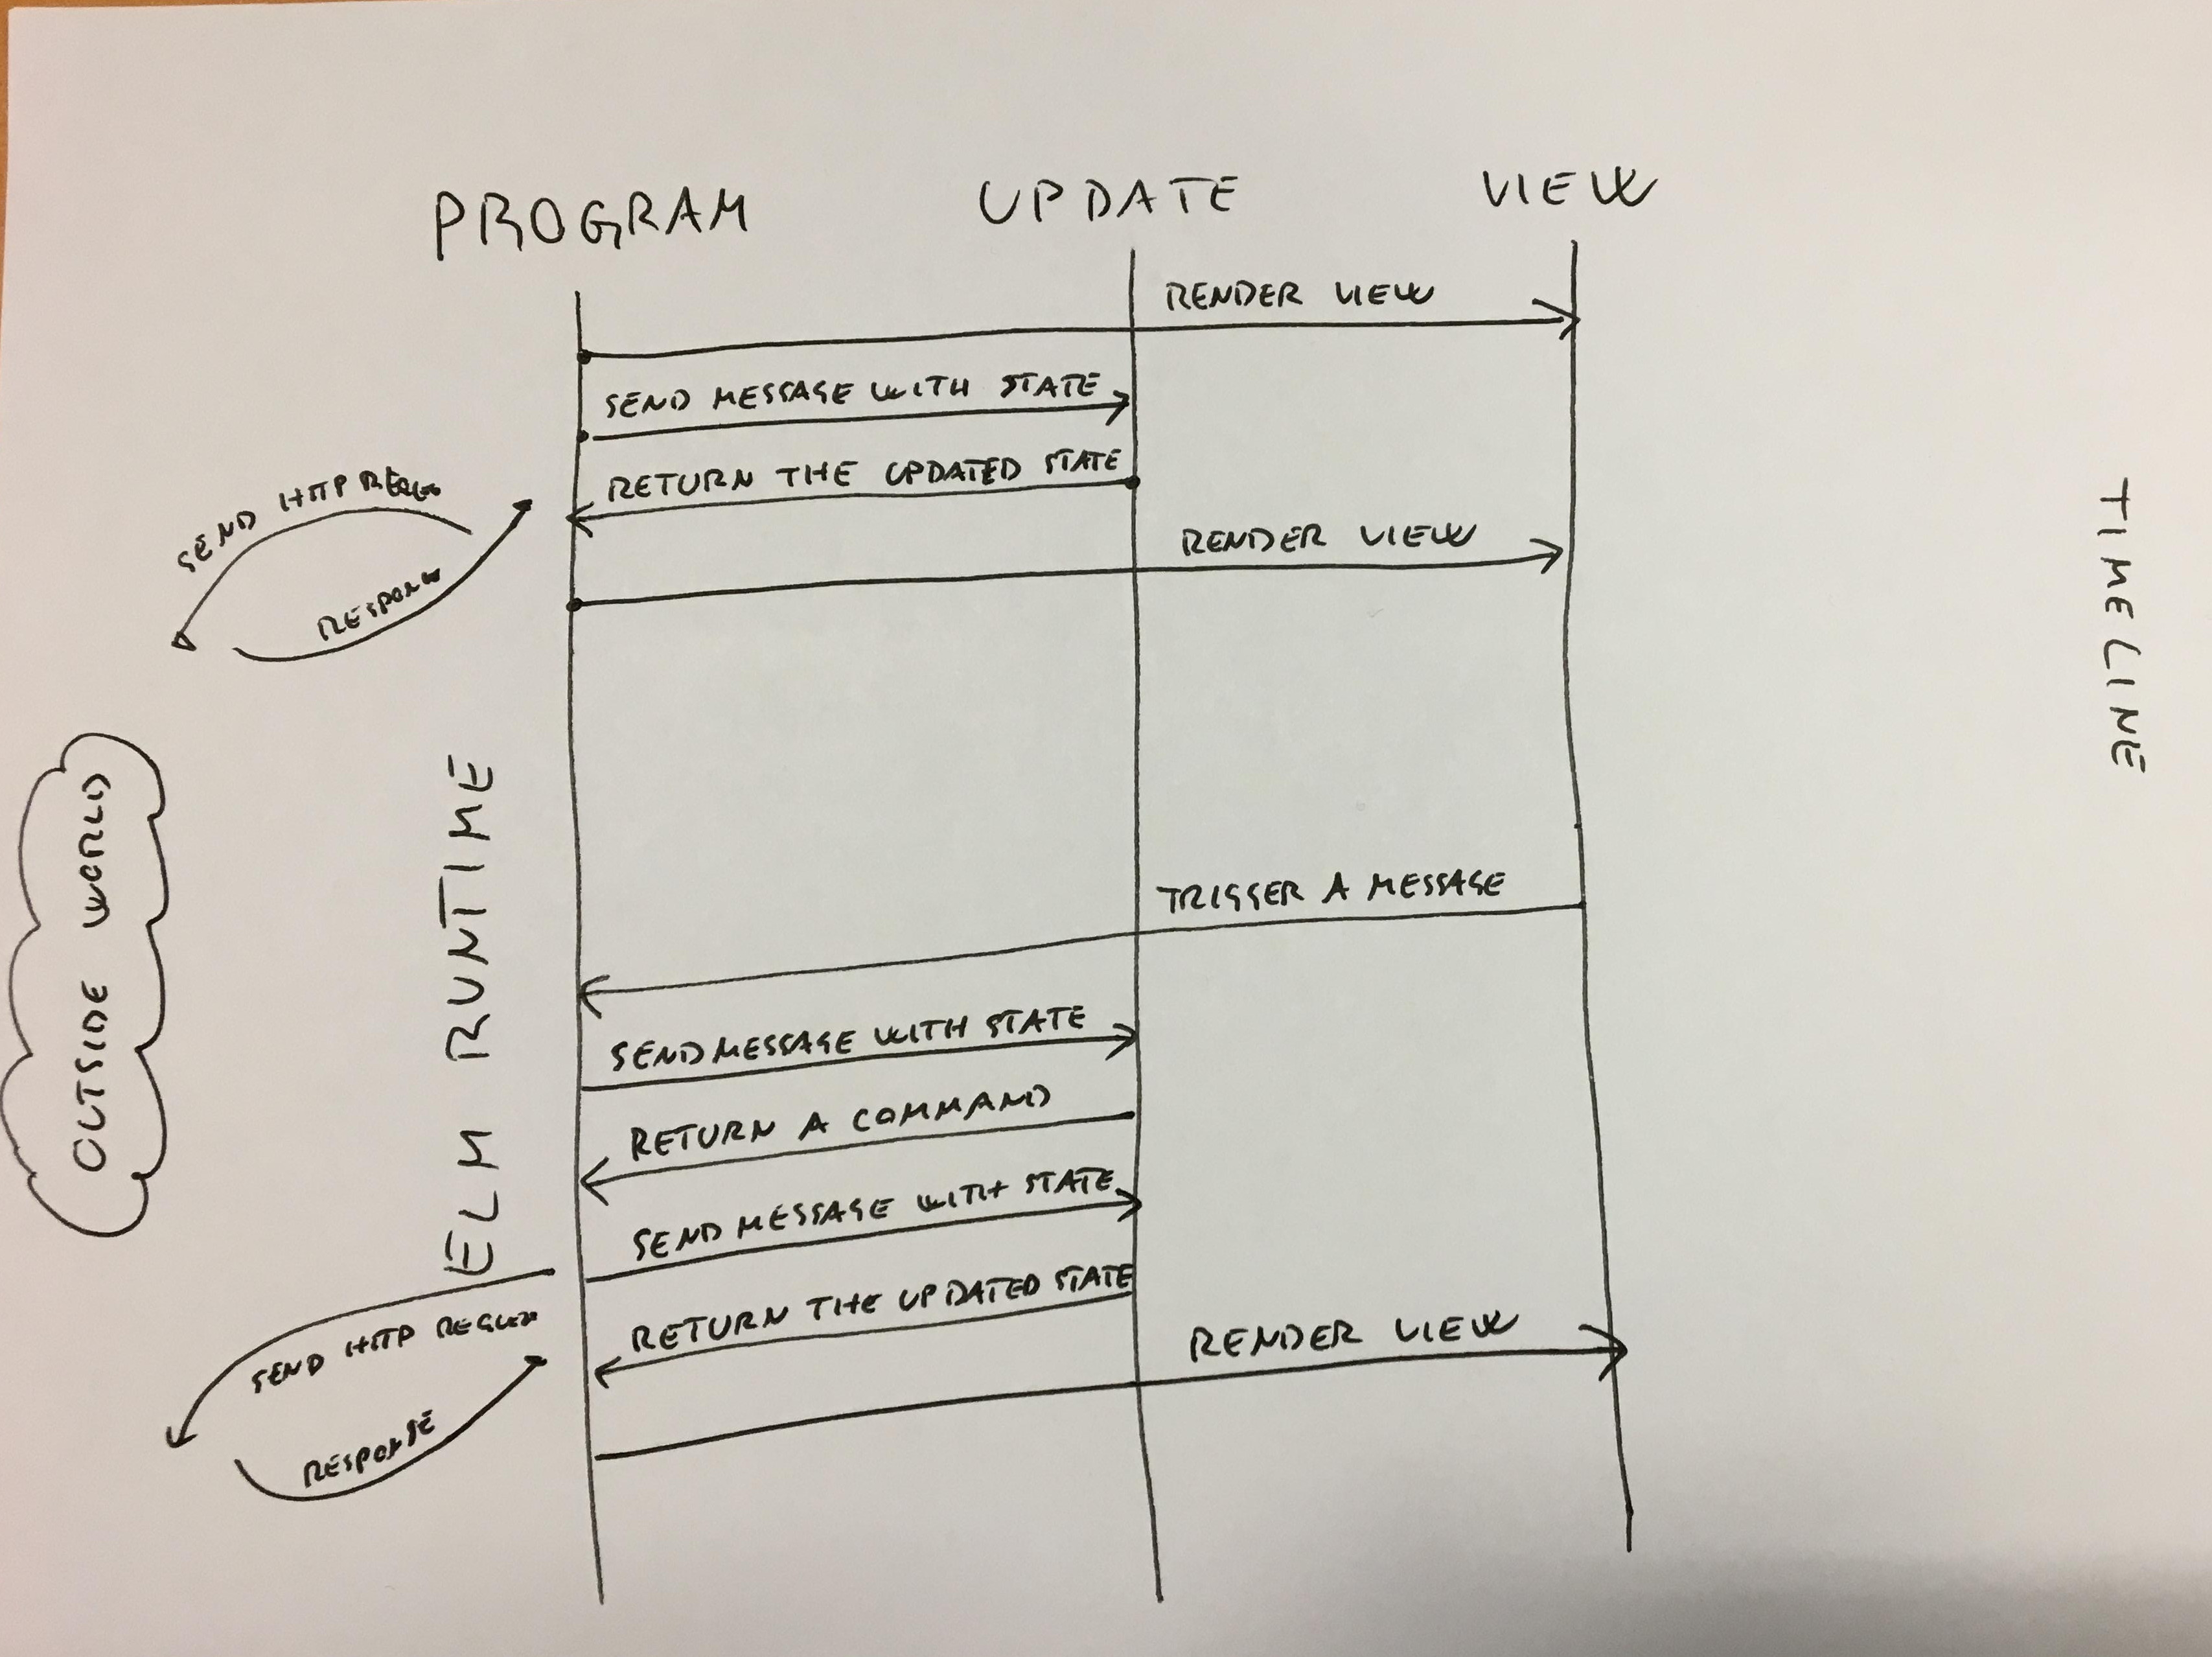 PROGRAM
UPDATE
VIEW
RENDER VIEW
SEND MESSAGE WITH STATE
RETURN THE UPDATED STATE
SEND HTTP
RENDER VIEW
TIMELINE
OUTSIDE WORLD
ELM RUNTIME
TRIGGER A MESSAGE
SEND MESSAGE WITH STATE
RETURN A COMMAND
SEND MESSAGE WITH STATE
RETURN THE UPDATED STATE
SEND HTTP
RENDER VIEW
RESPONSE